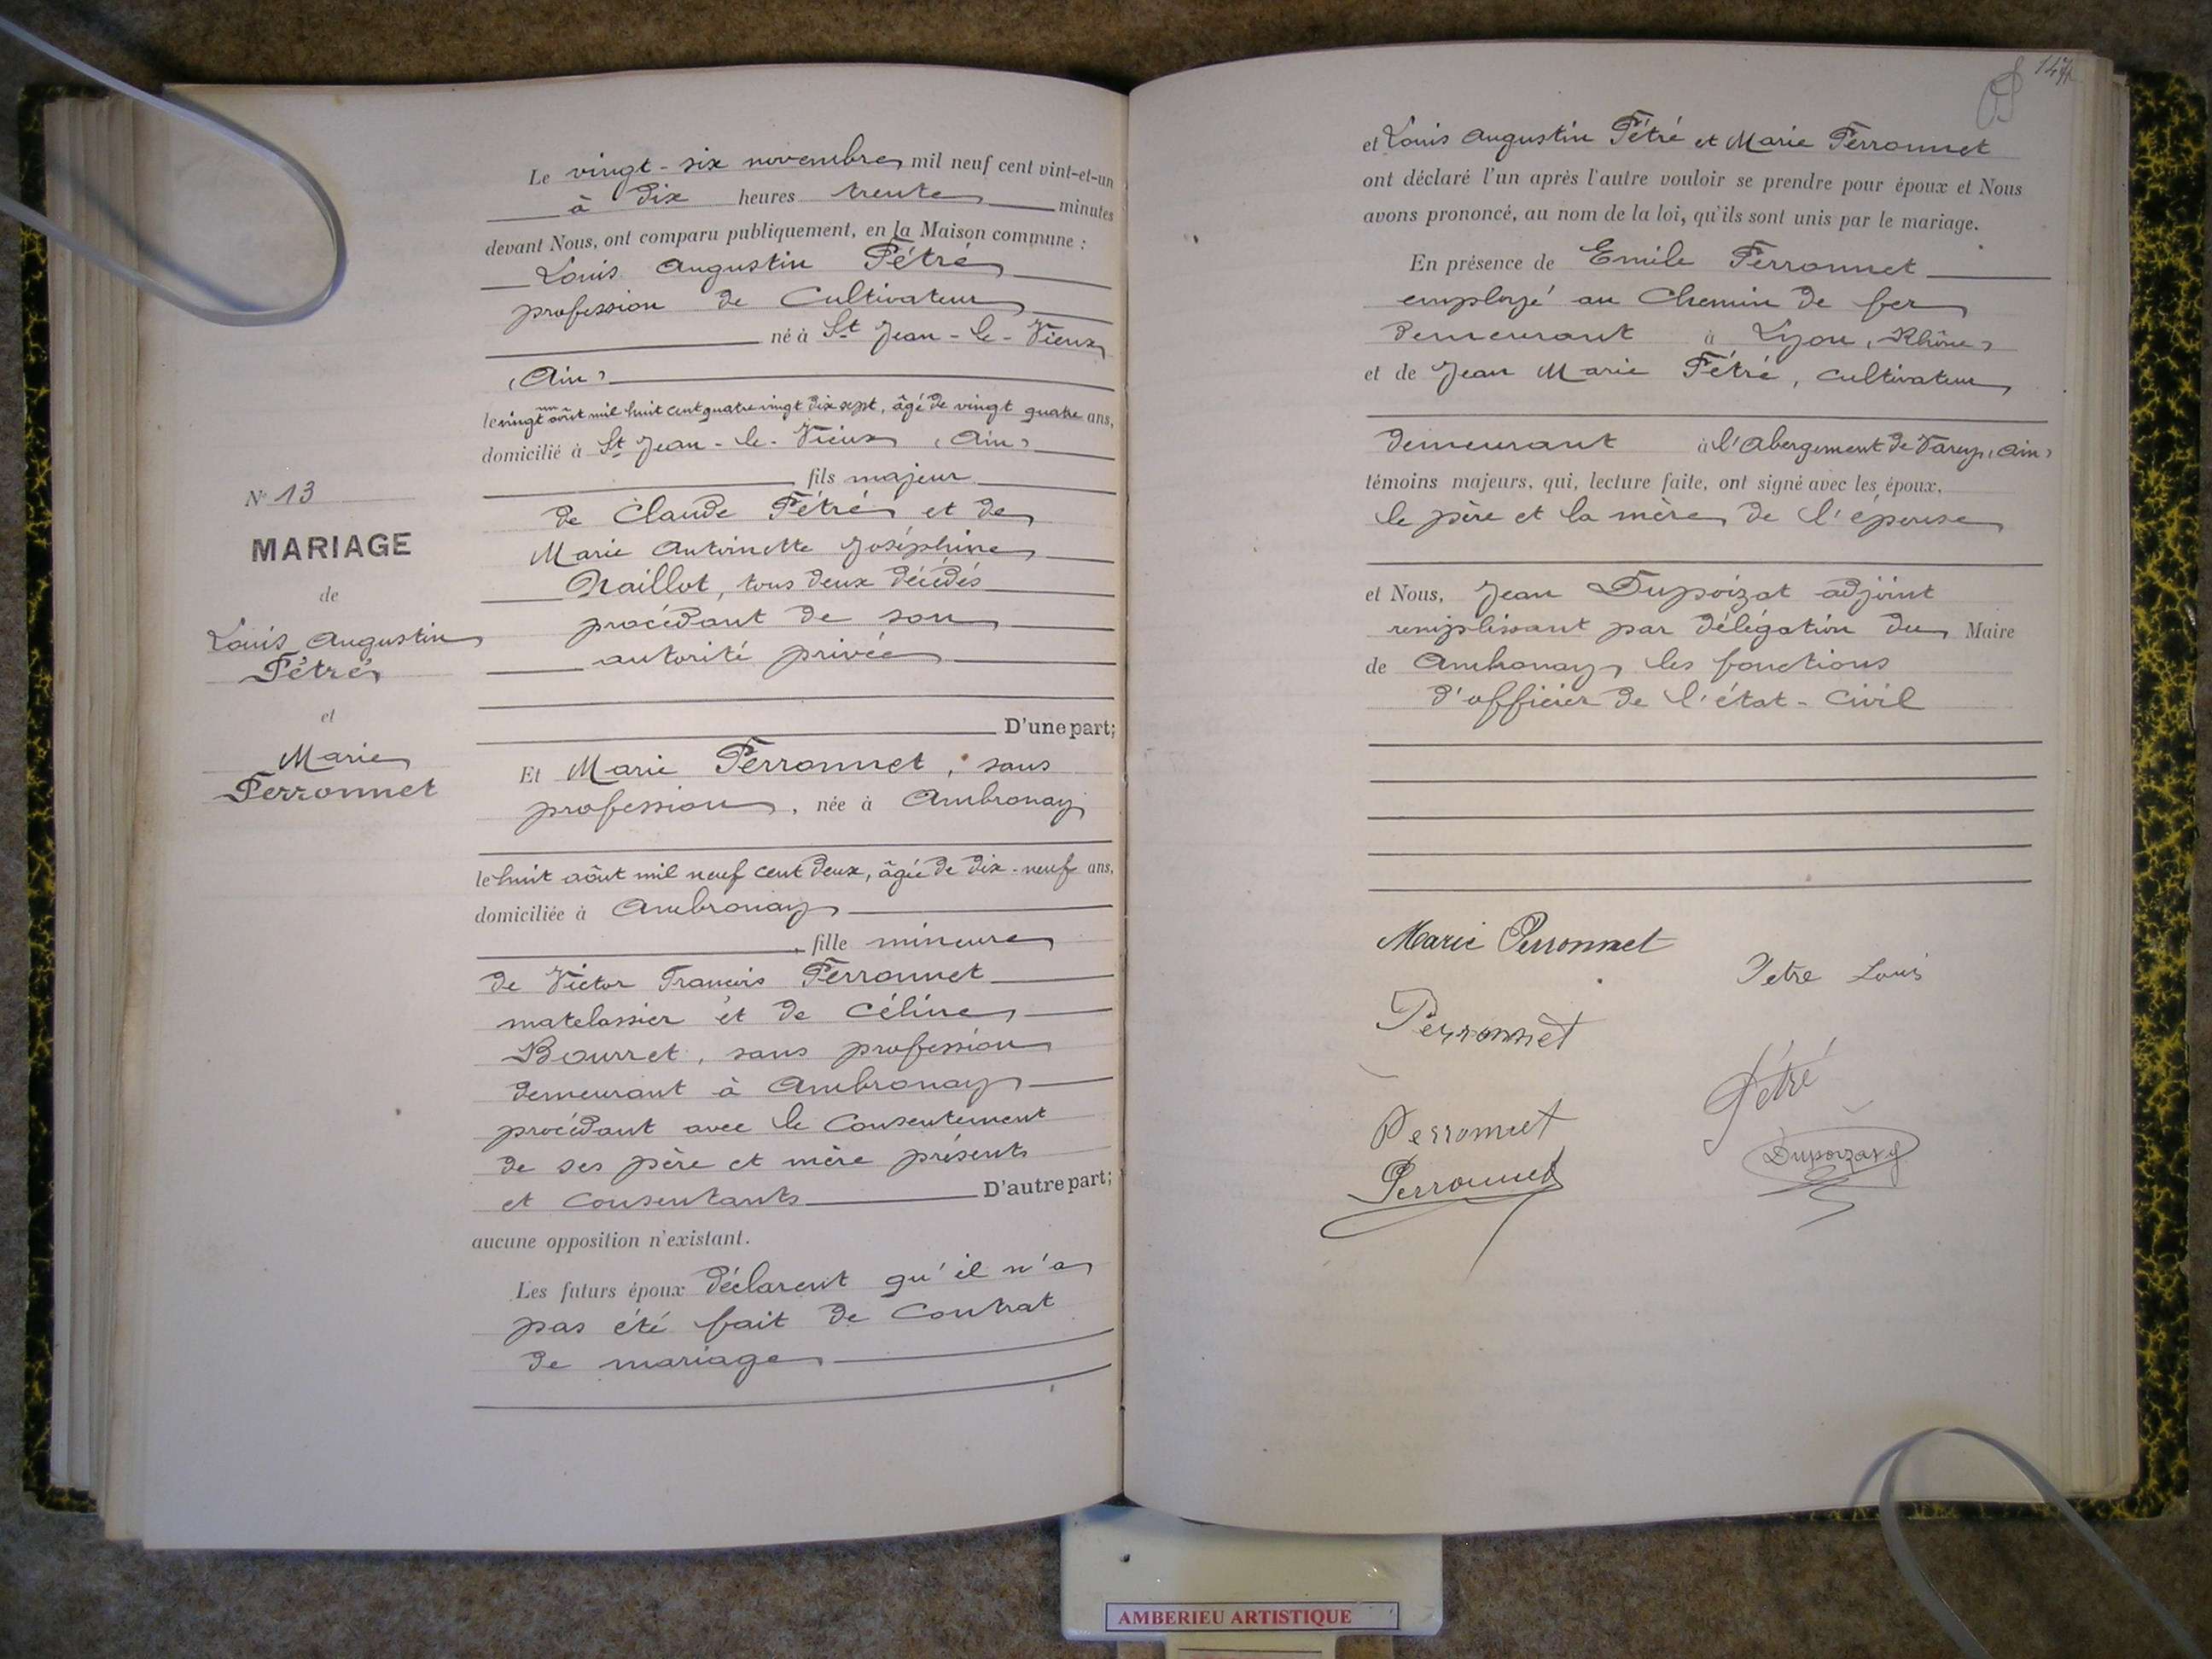 N° 13
MARIAGE
de
Louis Augustin
Pétré
et
Marie
Perronnet
Le vingt-six novembre mil neuf cent vint-et-un
à dix heures trente minutes
devant Nous, ont comparu publiquement, en la Maison commune :
Louis Augustin Pétré
profession de Cultivateur
né à St Jean-le-Vieux
(Ain)
le vingt un août mil huit cent quatre vingt dix sept, âgé de vingt quatre ans,
domicilié à St Jean-le-Vieux (Ain)
fils majeur
de Claude Pétré et de
Marie Antoinette Joséphine
Naillot, tous deux décédés
procédant de son
autorité privée
D'une part;
Et Marie Perronnet, sans
profession, née à Ambronay
le huit août mil neuf cent deux, âgée de dix-neuf ans,
domiciliée à Ambronay
, fille mineure
de Victor François Perronnet
matelassier et de Céline
Bourret, sans profession
demeurant à Ambronay
procédant avec le Consentement
de ses père et mère présents
et consentants D'autre part;
aucune opposition n'existant.
Les futurs époux déclarent qu'il n'a
pas été fait de Contrat
de mariage
147
et Louis Augustin Pétré et Marie Perronnet
ont déclaré l'un après l'autre vouloir se prendre pour époux et Nous
avons prononcé, au nom de la loi, qu'ils sont unis par le mariage.
En présence de Emile Perronnet
employé au Chemin de fer
demeurant à Lyon (Rhône)
et de Jean Marie Pétré, cultivateur
demeurant à l'Abergement de Varey (Ain)
témoins majeurs, qui, lecture faite, ont signé avec les époux,
le père et la mère de l'épouse
et Nous, Jean Dupoizat adjoint
remplissant par délégation du Maire
de Ambronay les fonctions
d'officier de l'état-civil
Marie Perronnet
Petre Louis
Perronnet
Pétré
Perronnet
Dupoizat
Perronnet
AMBERIEU ARTISTIQUE